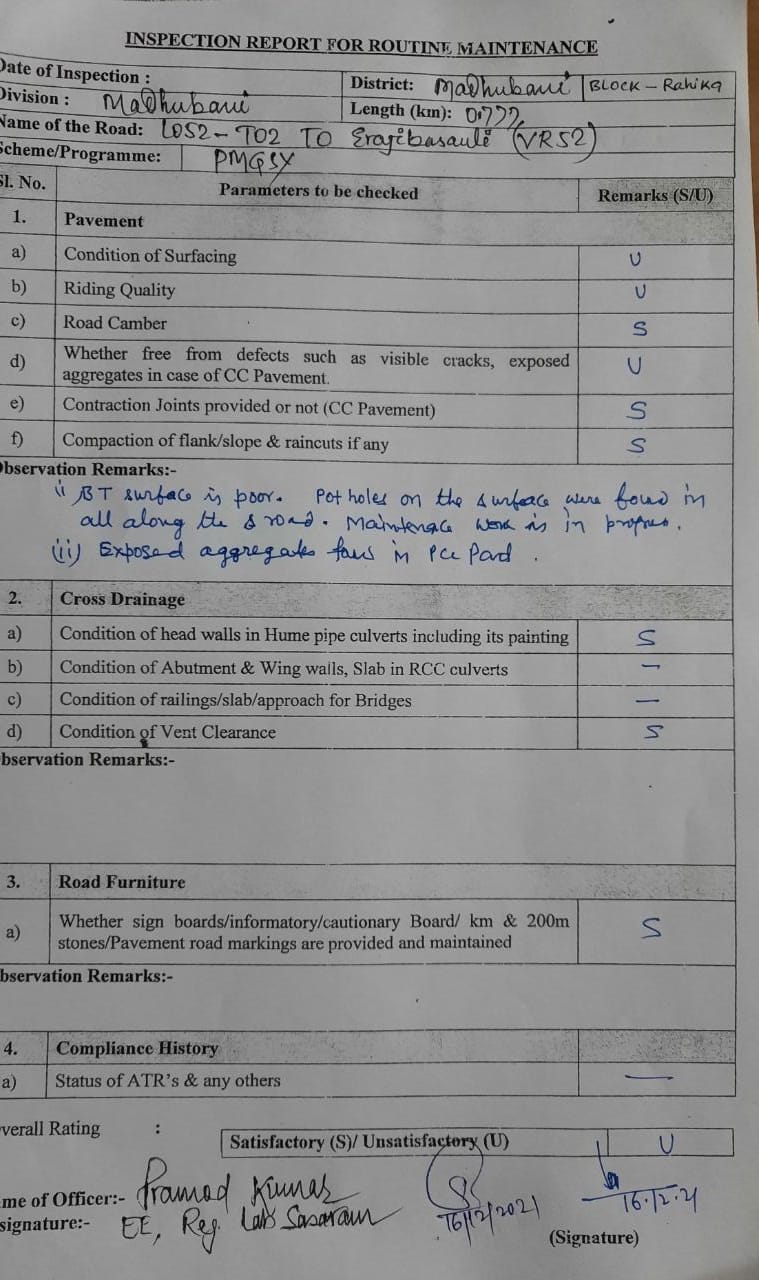 INSPECTION REPORT FOR ROUTINE MAINTENANCE
Date of Inspection :
District: Madhubani BLOCK - Rahika
Division : Madhubani
Length (km): 0.777
Name of the Road: L052 - T02 TO Erajibasauli (VR52)
Scheme/Programme: PMGSY
Sl. No. Parameters to be checked Remarks (S/U)
1. Pavement
a) Condition of Surfacing U
b) Riding Quality U
c) Road Camber S
d) Whether free from defects such as visible cracks, exposed U
aggregates in case of CC Pavement.
e) Contraction Joints provided or not (CC Pavement) S
f) Compaction of flank/slope & raincuts if any S
bservation Remarks:-
i) BT surface is poor. Pot holes on the surface were found in
all along the road. Maintenace work is in
(ii) Exposed aggregates in PCC
2. Cross Drainage
a) Condition of head walls in Hume pipe culverts including its painting S
b) Condition of Abutment & Wing walls, Slab in RCC culverts –
c) Condition of railings/slab/approach for Bridges —
d) Condition of Vent Clearance S
bservation Remarks:-
3. Road Furniture
a) Whether sign boards/informatory/cautionary Board/ km & 200m S
stones/Pavement road markings are provided and maintained
bservation Remarks:-
4. Compliance History
a) Status of ATR's & any others —
verall Rating :
Satisfactory (S)/ Unsatisfactory (U) U
me of Officer:- Pramod Kumar
signature:- EE, Reg. Lab Sasaram
16/12/2021
16.12.21
(Signature)